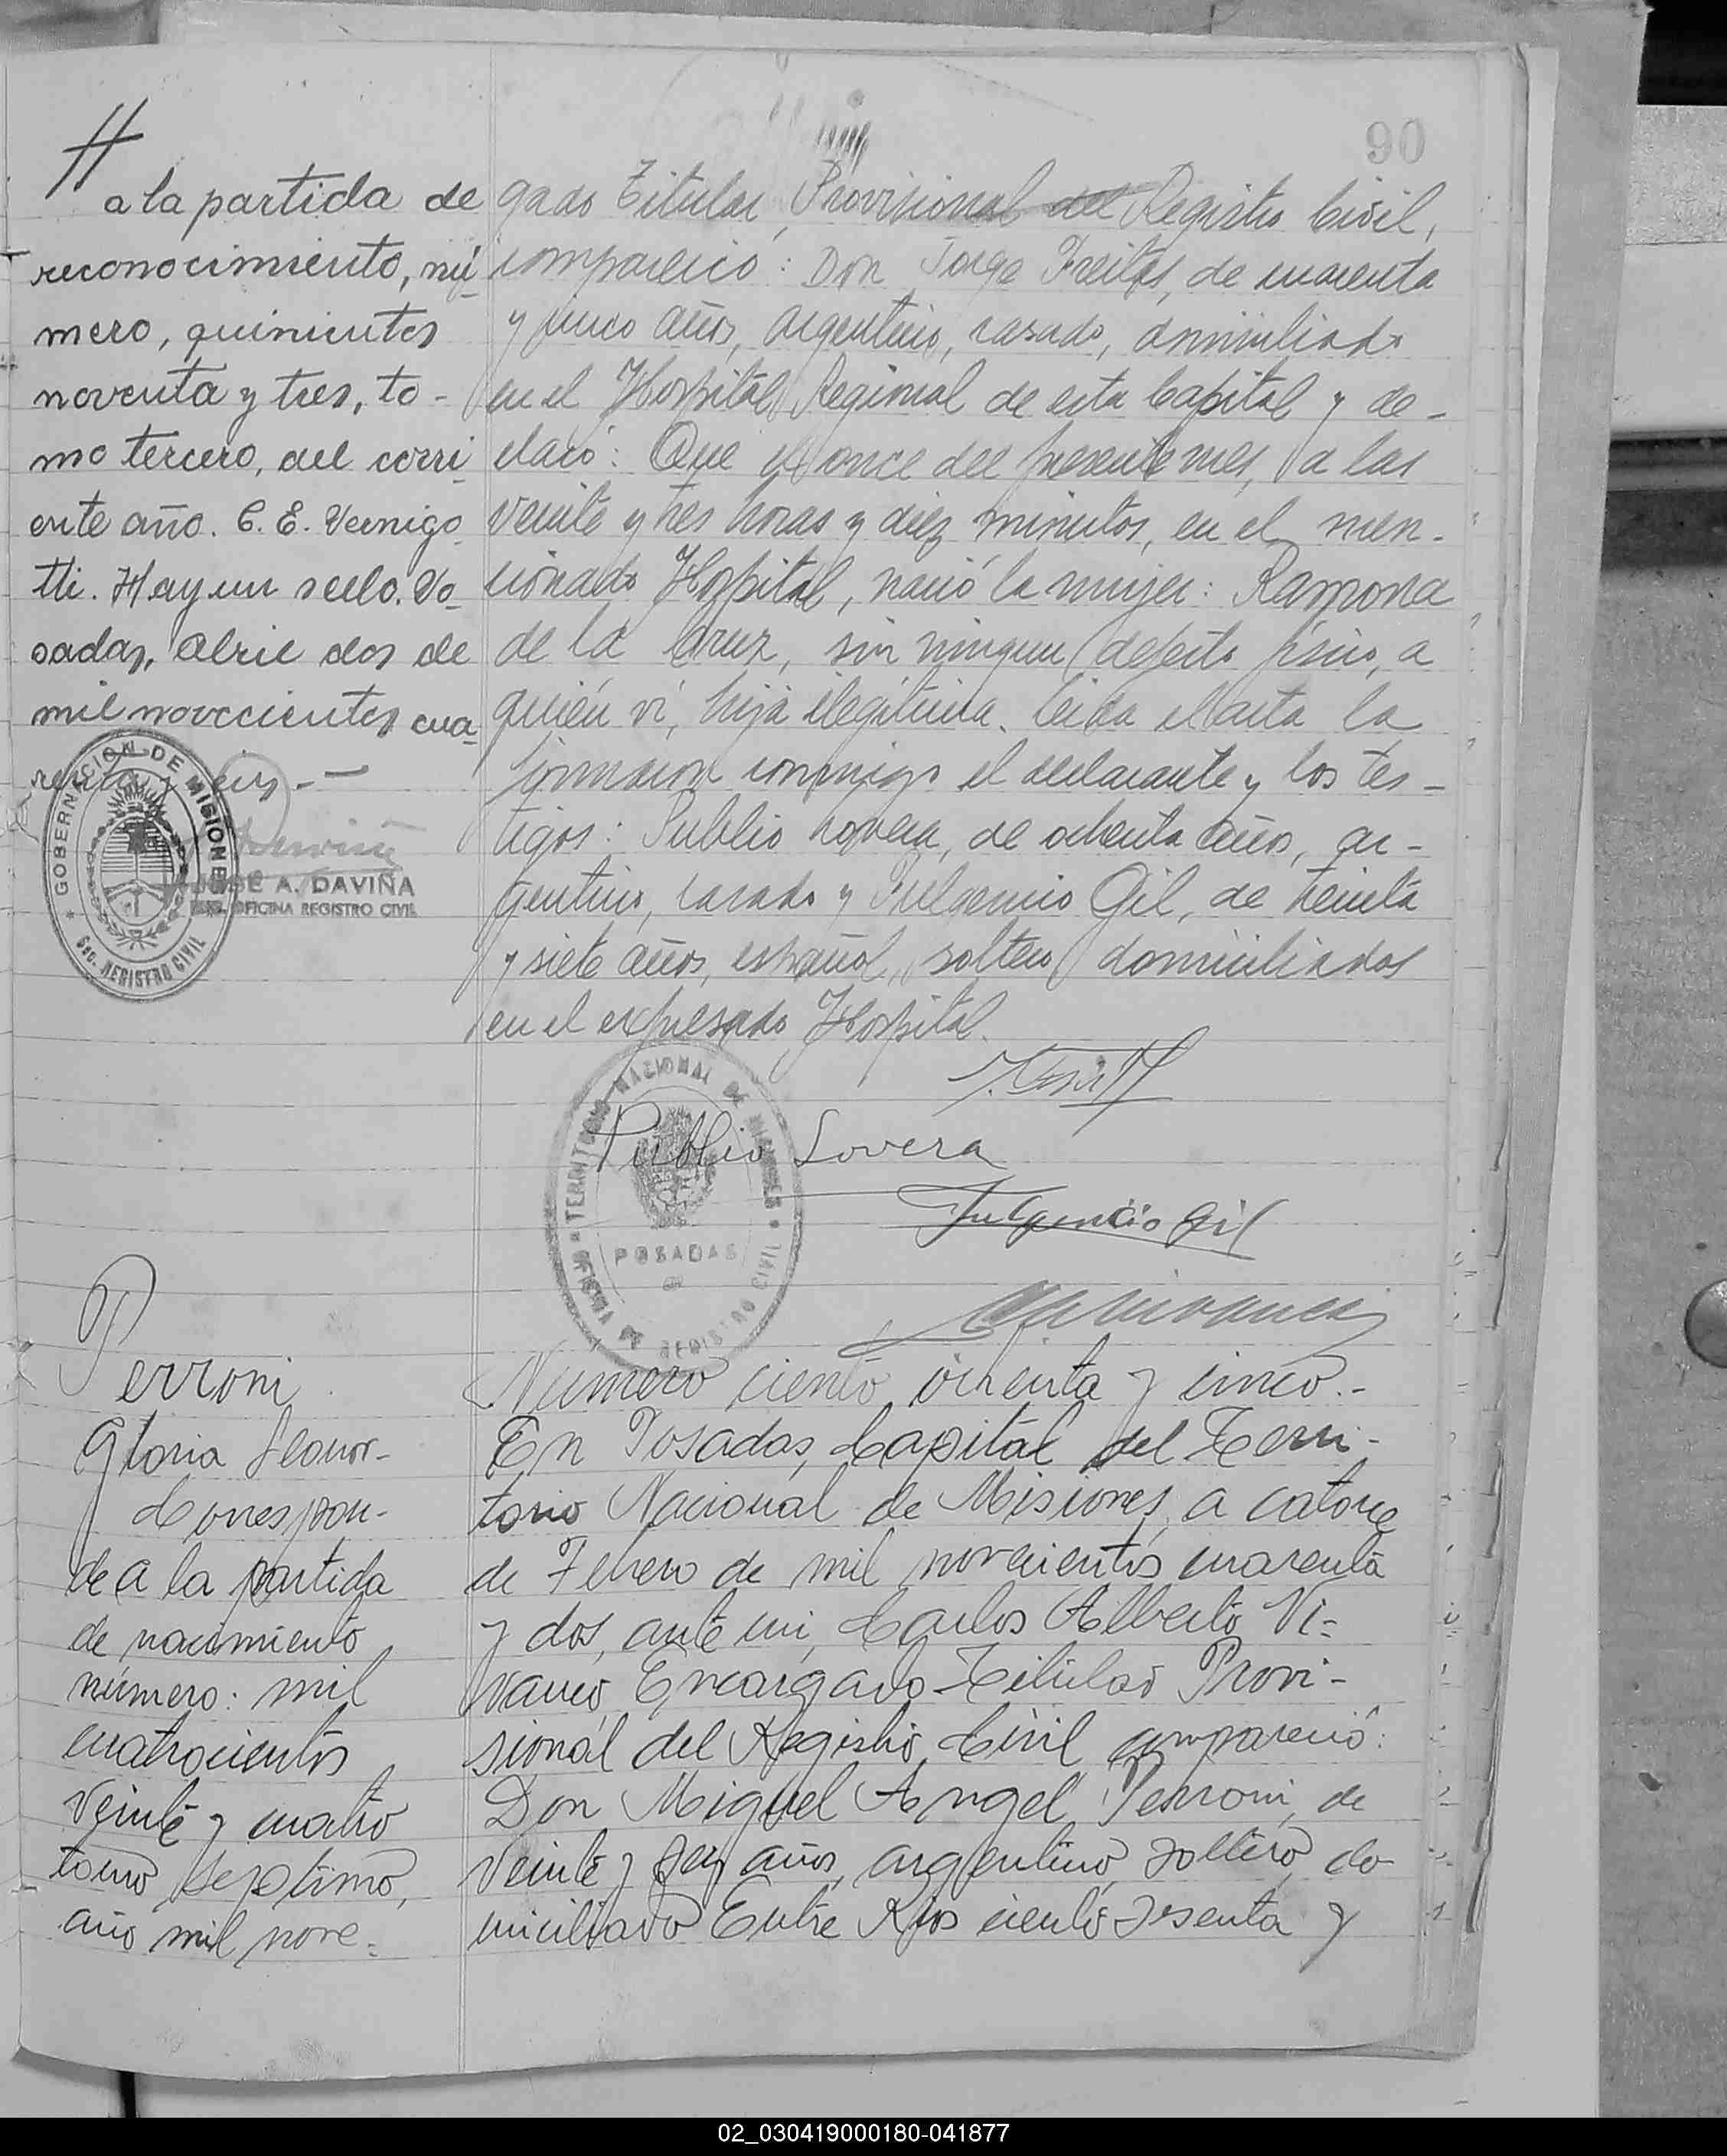 90
a la partida de
reconocimiento, nú-
mero, quinientos
noventa y tres, to-
mo tercero, del corri-
ente año. C. E. Vernigo-
tti. Hay un sello. Po-
sadas, abril dos de
mil novecientos cua-
renta y seis.-
GOBERNACION DE MISIONES
Sec. REGISTRO CIVIL
JOSE A. DAVIÑA
OFICINA REGISTRO CIVIL
gado Titular Provisional del Registro Civil,
compareció: Don Jorge Freitas, de cuarenta
y cinco años, argentino, casado, domiciliado
en el Hospital Regional de esta Capital y de-
claró: Que el once del presente mes, a las
veinte y tres horas y diez minutos, en el men-
cionado Hospital, nació la mujer: Ramona
de la Cruz, sin ningun defecto físico, a
quién ví, hija ilegítima. Leida el acta la
firmaron conmigo el declarante y los tes-
tigos: Publio Lovera, de ochenta años, ar-
gentino, casado y Fulgencio Gil, de treinta
y siete años, español, soltero domiciliados
en el expresado Hospital.
Publio Lovera
Fulgencio Gil
TERRITORIO NACIONAL DE MISIONES
POSADAS
OFICINA DE REGISTRO CIVIL
Perroni
Gloria Leonor-
Correspon-
de a la partida
de nacimiento
número: mil
cuatrocientos
veinte y cuatro
tomo septimo,
año mil nove-
Número ciento ochenta y cinco.-
En Posadas, Capital del Terri-
torio Nacional de Misiones, a catorce
de Febrero de mil novecientos cuarenta
y dos, ante mi, Carlos Alberto Vi-
vanco, Encargado Titular Provi-
sional del Registro Civil compareció:
Don Miguel Angel Perroni, de
veinte y seis años, argentino, soltero, do-
miciliado Entre Rios ciento sesenta y
02_030419000180-041877